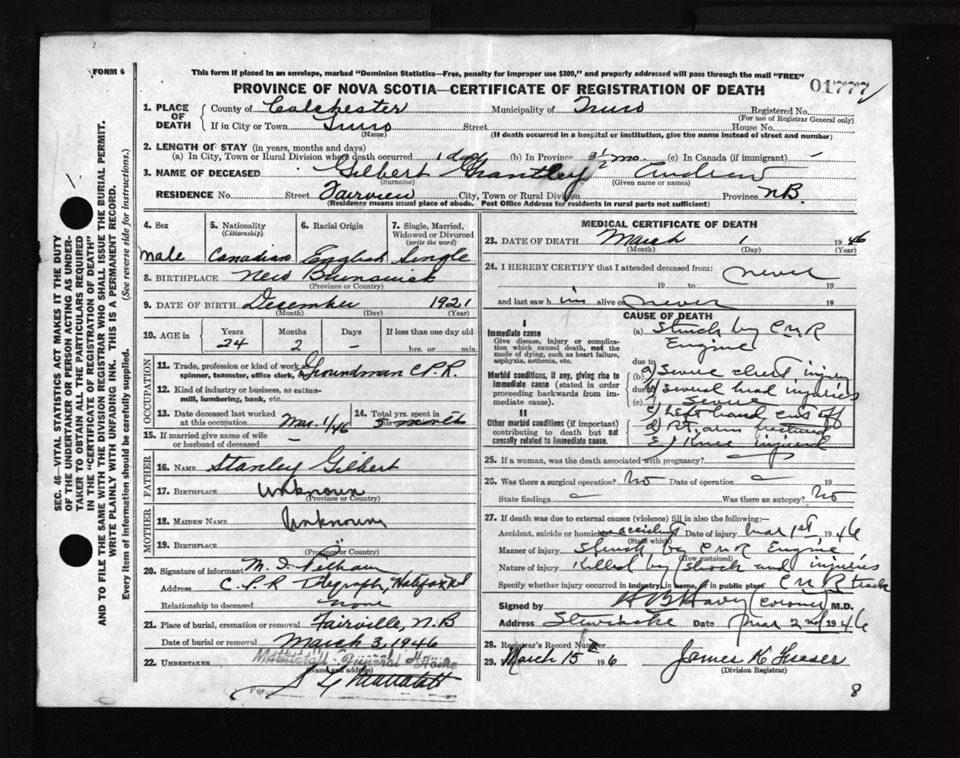 FORM 6
This form if placed in an envelope, marked "Dominion Statistics—Free, penalty for improper use $300," and properly addressed will pass through the mail "FREE"
PROVINCE OF NOVA SCOTIA—CERTIFICATE OF REGISTRATION OF DEATH
01777
1. PLACE OF DEATH
County of Colchester Municipality of Truro Registered No.
(For use of Registrar General only)
If in City or Town Truro Street House No.
(Name) (If death occurred in a hospital or institution, give the name instead of street and number)
2. LENGTH OF STAY (in years, months and days)
(a) In City, Town or Rural Division where death occurred 1 day (b) In Province 3½ mo. (c) In Canada (if immigrant) –
3. NAME OF DECEASED Gilbert Grantley Andrew
(Surname) (Given name or names)
RESIDENCE No. Street Fairview City, Town or Rural Division Province N.B.
(Residence means usual place of abode. Post Office Address for residents in rural parts not sufficient)
4. Sex
5. Nationality
(Citizenship)
6. Racial Origin
7. Single, Married, Widowed or Divorced
(write the word)
Male Canadian English Single
8. BIRTHPLACE New Brunswick
(Province or Country)
9. DATE OF BIRTH December 1921
(Month) (Day) (Year)
10. AGE in Years Months Days If less than one day old
24 2 – hrs. or min.
OCCUPATION
11. Trade, profession or kind of work as spinner, teamster, office clerk, Groundman C.P.R.
12. Kind of industry or business, as cotton-mill, lumbering, bank, etc.
13. Date deceased last worked at this occupation Mar. 1/46
14. Total yrs. spent in this occupation 3 months
15. If married give name of wife or husband of deceased –
FATHER
16. NAME Stanley Gilbert
17. BIRTHPLACE Unknown
(Province or Country)
MOTHER
18. MAIDEN NAME Unknown
19. BIRTHPLACE
(Province or Country)
20. Signature of informant
Address C.P.R. Telegraph, Halifax NS
Relationship to deceased none
21. Place of burial, cremation or removal Fairville, N.B
Date of burial or removal March 3, 1946
22. UNDERTAKER Funeral Home
(Name and address)
MEDICAL CERTIFICATE OF DEATH
23. DATE OF DEATH March 1 1946
(Month) (Day) (Year)
24. I HEREBY CERTIFY that I attended deceased from: never
19 to 19
and last saw him alive on never 19
CAUSE OF DEATH
I
Immediate cause
Give disease, injury or complication which caused death, not the mode of dying, such as heart failure, asphyxia, asthenia, etc.
(a) Struck by CNR Engine
due to
Morbid conditions, if any, giving rise to immediate cause (stated in order proceeding backwards from immediate cause).
(b) Severe chest injury
due to Several head injuries
(c) Severe
II
Other morbid conditions (if important) contributing to death but not causally related to immediate cause.
c) Left hand cut off
d) Rt. arm fractured
E) Knee injured
25. If a woman, was the death associated with pregnancy?
26. Was there a surgical operation? No Date of operation – 19
State findings – Was there an autopsy? No
27. If death due to external causes (violence) fill in also the following:—
Accident, suicide or homicide accident Date of injury Mar 1st 1946
(State which)
Manner of injury Struck by CNR Engine
(How sustained)
Nature of injury Killed by shock and injuries
Specify whether injury occurred in industry, in home, or in public place CNR track
Signed by (Coroner) M.D.
Address Date Mar 2nd 1946
28. Registrar's Record Number
29. March 15 1946 James K Fraser
(Division Registrar)
8
SEC. 46—VITAL STATISTICS ACT MAKES IT THE DUTY
OF THE UNDERTAKER OR PERSON ACTING AS UNDER-
TAKER TO OBTAIN ALL THE PARTICULARS REQUIRED
IN THE "CERTIFICATE OF REGISTRATION OF DEATH"
AND TO FILE THE SAME WITH THE DIVISION REGISTRAR WHO SHALL ISSUE THE BURIAL PERMIT.
WRITE PLAINLY WITH UNFADING INK. THIS IS A PERMANENT RECORD.
Every item of information should be carefully supplied. (See reverse side for instructions.)